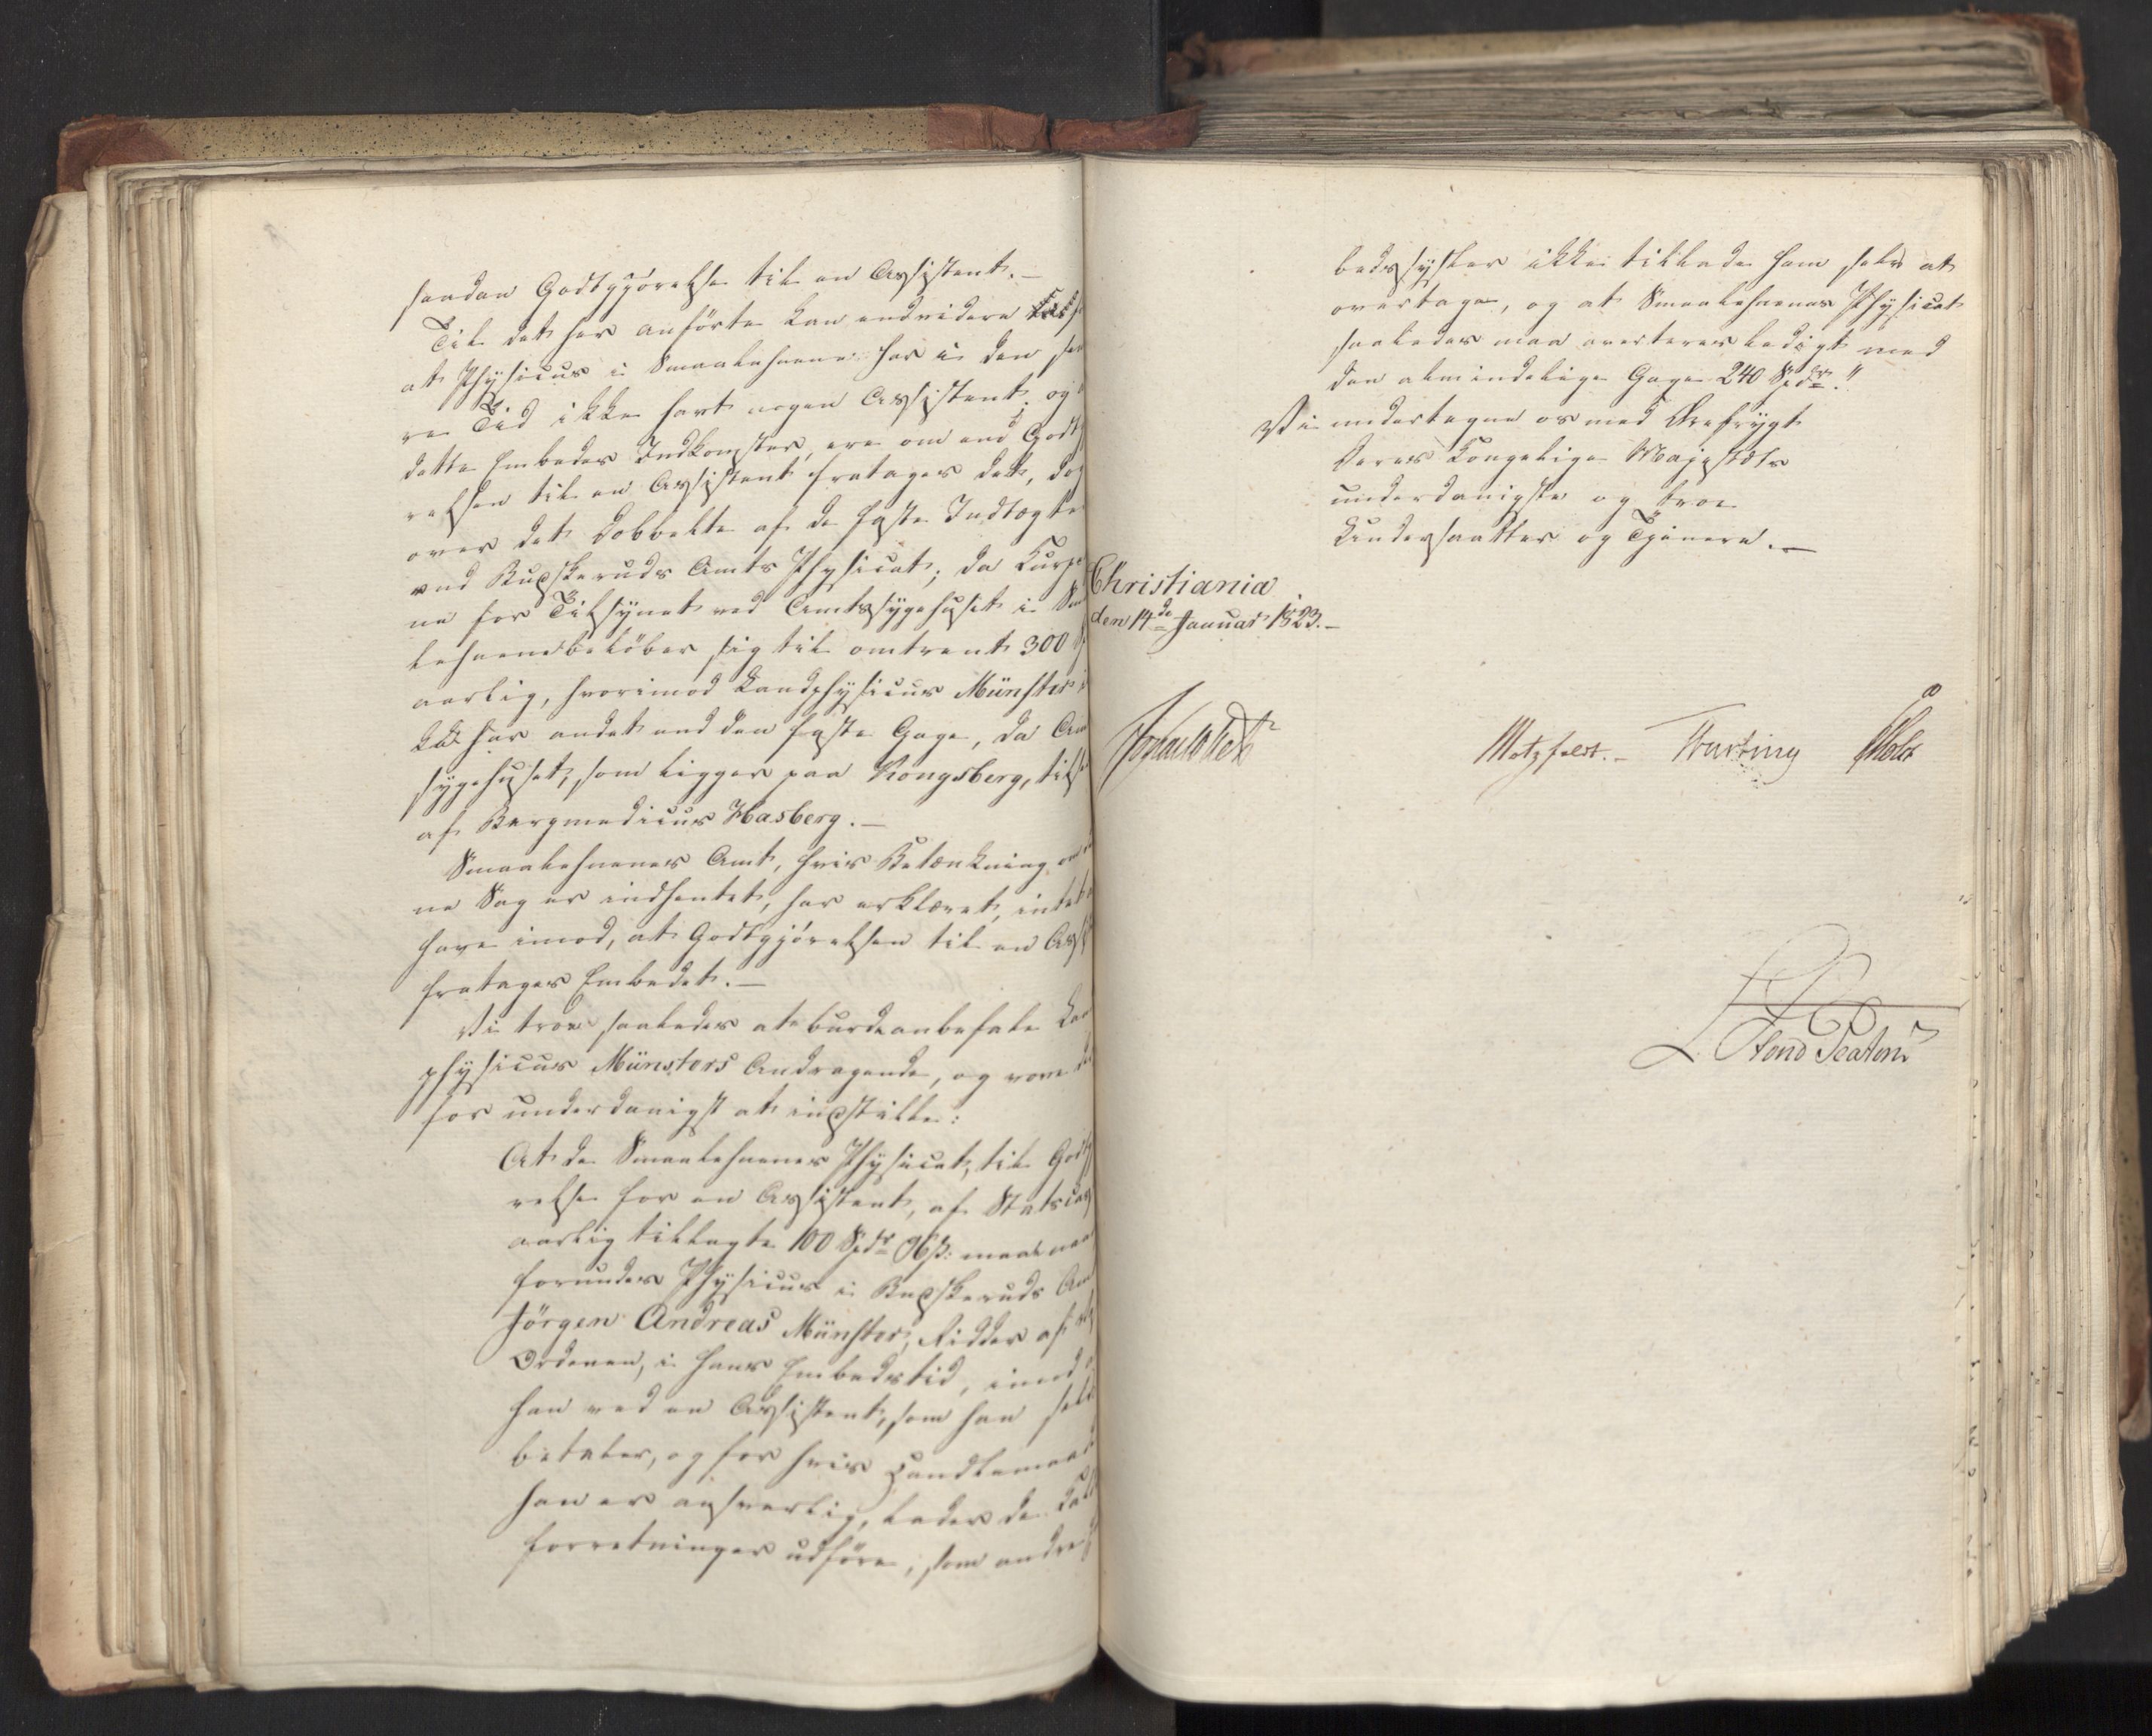 saadan Godtgjörelse til en Assistent.—
Til det her anförte kan endvidere
at Physicus i Smaalehnene har i den se
re Tid ikke havt nogen Assistent, og
dette Embedes Indkomster, ere om end Godtg
relsen til en Assistent fratages det, dog
over det Dobbelte af de faste Indtægter
ved Buskeruds Amts Physicat; da
ne for Tilsynet ved Amtssygehuset i Smaa
lehnene beløber sig til omtrent 300
aarlig, hvorimod Landphysicus Münster i
ke har andet end den faste Gage, da Am
sygehuset, som ligger paa Kongsberg, tilse
af Bergmedicus Hasberg.—
Smaalehnenes Amt, hvis Betænkning om
ne Sag er indhentet, har erklæret, intet
have imod, at Godtgjörelsen til en Ass
fratages Embedet.—
Vi troe saaledes at burde anbefale Lan
physicus Münsters Andragende, og vove
for underdanigst at indstille:
At de Smaalehnenes Physicat, til Godtg
relse for en Assistent, af Statscas
aarlig tillagte 100 Spdr 96 ß: maa
forundes Physicus i Buskeruds Am
Jörgen Andreas Münster, Ridder af
Ordenen, i hans Embedstid, imod
han ved en Assistent, som han selv
betaler, og for hvis Handlemaade
han er ansvarlig, lader de
forretninger udföre, som andre
bedssysler ikke tillade ham selv at
overtage, og at Smaalehnenes Physicat
saaledes maa averteres ledigt med
den almindelige Gage 240 Spdr."
Vi undertegne os med Ærefrygt
Deres Kongelige Majestæts
underdanigste og troe
Undersaatter og Tjenere.—
Christiania
den 14de Januar 1823.—
Motzfeldt.— Holst